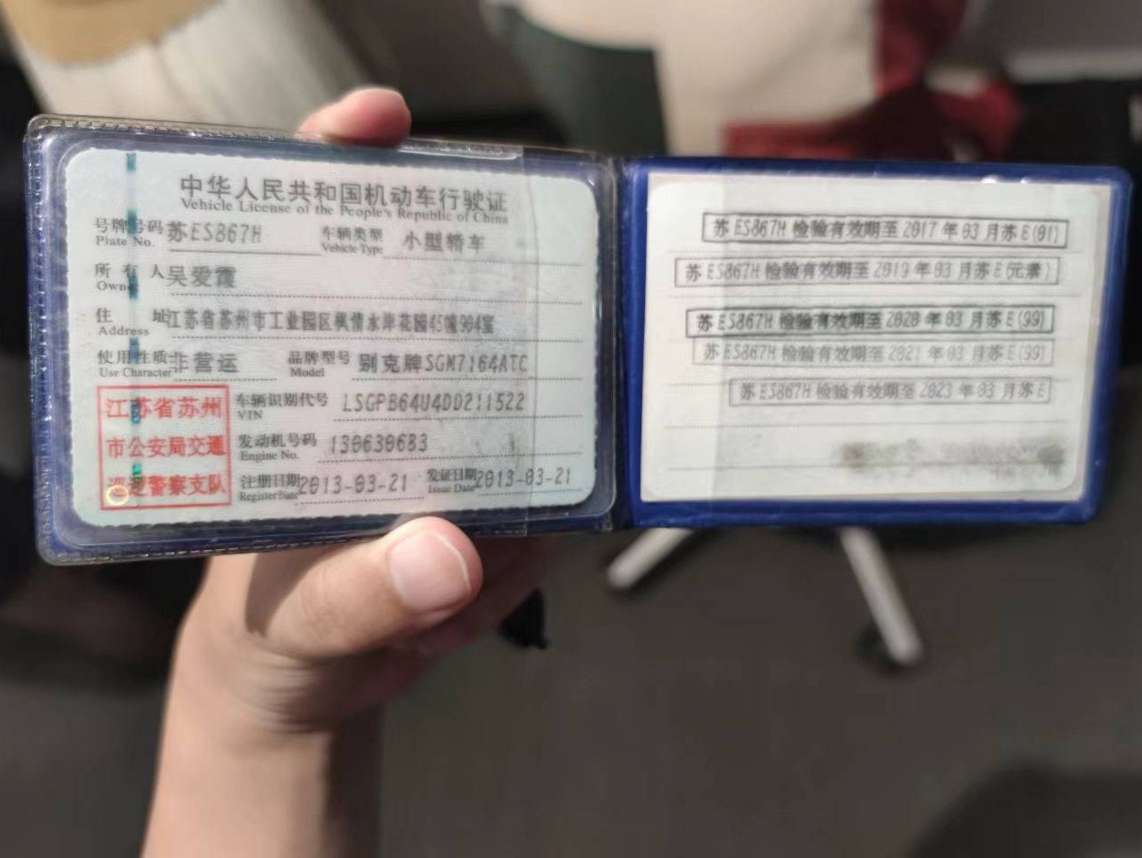 中华人民共和国机动车行驶证
Vehicle License of the People's Republic of China
号牌号码 苏ES867H 车辆类型 小型轿车
Plate No. Vehicle Type
所有人 吴爱霞
Owner
住址 江苏省苏州市工业园区枫情水岸花园45幢904室
Address
使用性质 非营运 品牌型号 别克牌SGM7164ATC
Use Character Model
江苏省苏州
市公安局交通
巡逻警察支队
车辆识别代号 LSGPB64U4DD211522
VIN
发动机号码 130630683
Engine No.
注册日期 2013-03-21 发证日期 2013-03-21
Register Date Issue Date
苏ES867H 检验有效期至 2017年03月苏E(01)
苏ES867H 检验有效期至 2019年03月苏E(元素)
苏ES867H 检验有效期至 2020年03月苏E(99)
苏ES867H 检验有效期至 2021年03月苏E(99)
苏ES867H 检验有效期至 2023年03月苏E